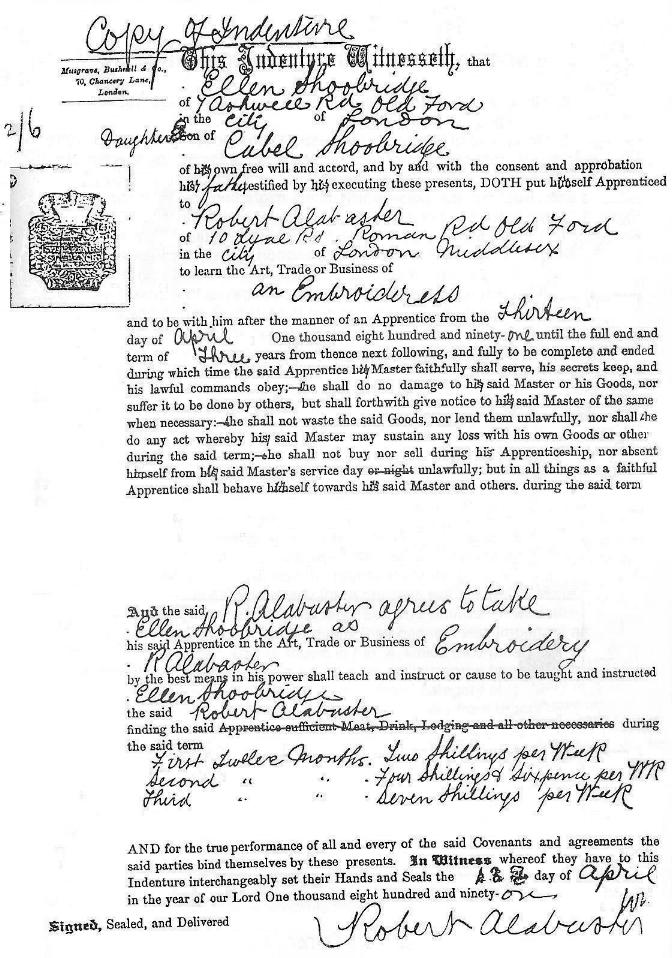 Copy of Indenture
This Indenture Witnesseth, that
Musgrave, Bushnell & Co.,
70, Chancery Lane,
London.
Ellen Shoobridge
of 7 Ashwell Rd Old Ford
in the City of London
2/6
Daughter Son of
Cabel Shoobridge
of his own free will and accord, and by and with the consent and approbation
his father testified by his executing these presents, DOTH put himself Apprenticed
to
Robert Alabaster
of 10 Dyal Rd Roman Rd Old Ford
in the City of London Middlesex
to learn the Art, Trade or Business of
an Embroideress
and to be with him after the manner of an Apprentice from the Thirteen
day of April One thousand eight hundred and ninety-one until the full end and
term of Three years from thence next following, and fully to be complete and ended
during which time the said Apprentice his Master faithfully shall serve, his secrets keep, and
his lawful commands obey;—she shall do no damage to his said Master or his Goods, nor
suffer it to be done by others, but shall forthwith give notice to his said Master of the same
when necessary:—she shall not waste the said Goods, nor lend them unlawfully, nor shall she
do any act whereby his said Master may sustain any loss with his own Goods or other
during the said term;—she shall not buy nor sell during his Apprenticeship, nor absent
himself from his said Master's service day or night unlawfully; but in all things as a faithful
Apprentice shall behave himself towards his said Master and others. during the said term
And the said R. Alabaster agrees to take
Ellen Shoobridge as
his said Apprentice in the Art, Trade or Business of Embroidery
R Alabaster
by the best means in his power shall teach and instruct or cause to be taught and instructed
Ellen Shoobridge
the said Robert Alabaster
finding the said Apprentice sufficient Meat, Drink, Lodging and all other necessaries during
the said term
First Twelve Months. Two Shillings per Week
Second " " . Four Shillings & Sixpence per WK
Third " " . Seven Shillings per Week
AND for the true performance of all and every of the said Covenants and agreements the
said parties bind themselves by these presents. In Witness whereof they have to this
Indenture interchangeably set their Hands and Seals the day of April
in the year of our Lord One thousand eight hundred and ninety-one
Signed, Sealed, and Delivered
Robert Alabaster